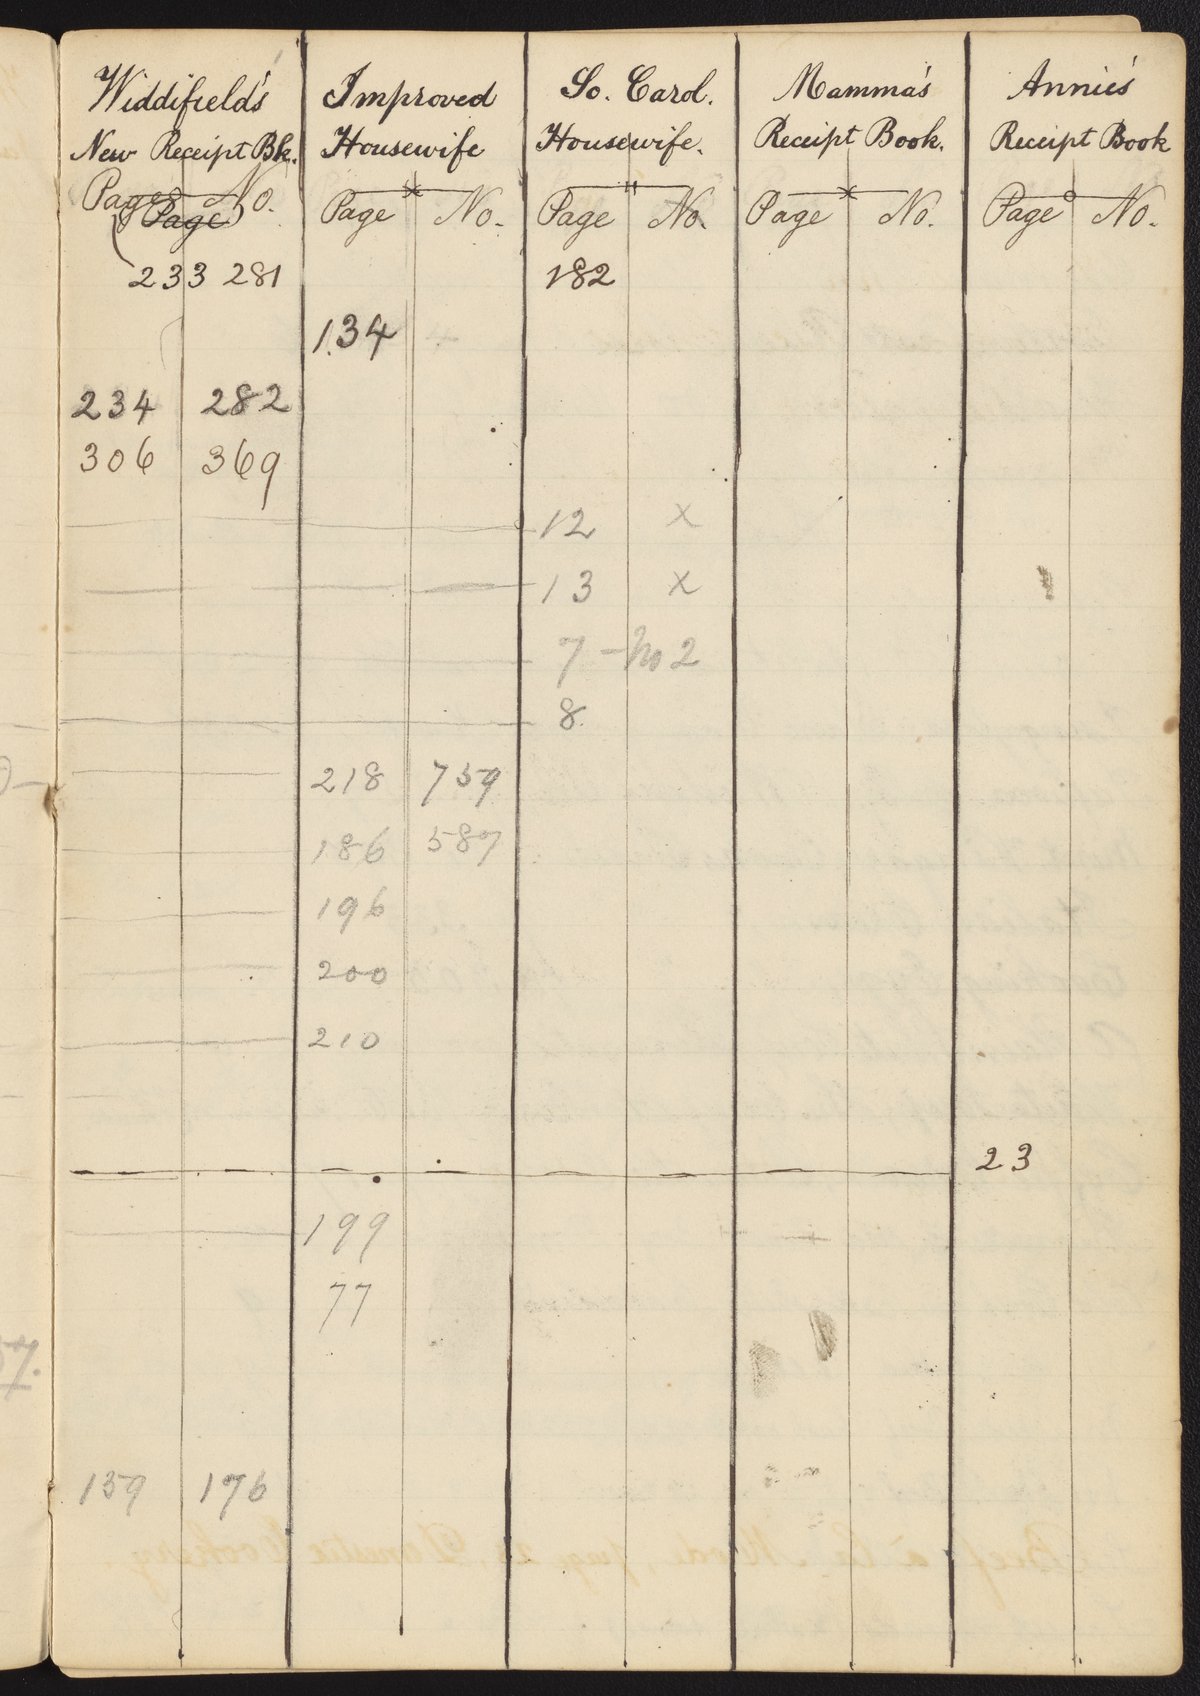 Widdifield's Improved So. Carol. Mamma's Annie's
New Receipt Bk. Housewife Housewife. Receipt Book. Receipt Book
Page No. Page No. Page No. Page No. Page No.
Page
233 281 182
134
234 282
306 369
12 x
13 x
7 - No 2
8
218 759
186 587
196
200
210
23
199
77
159 176